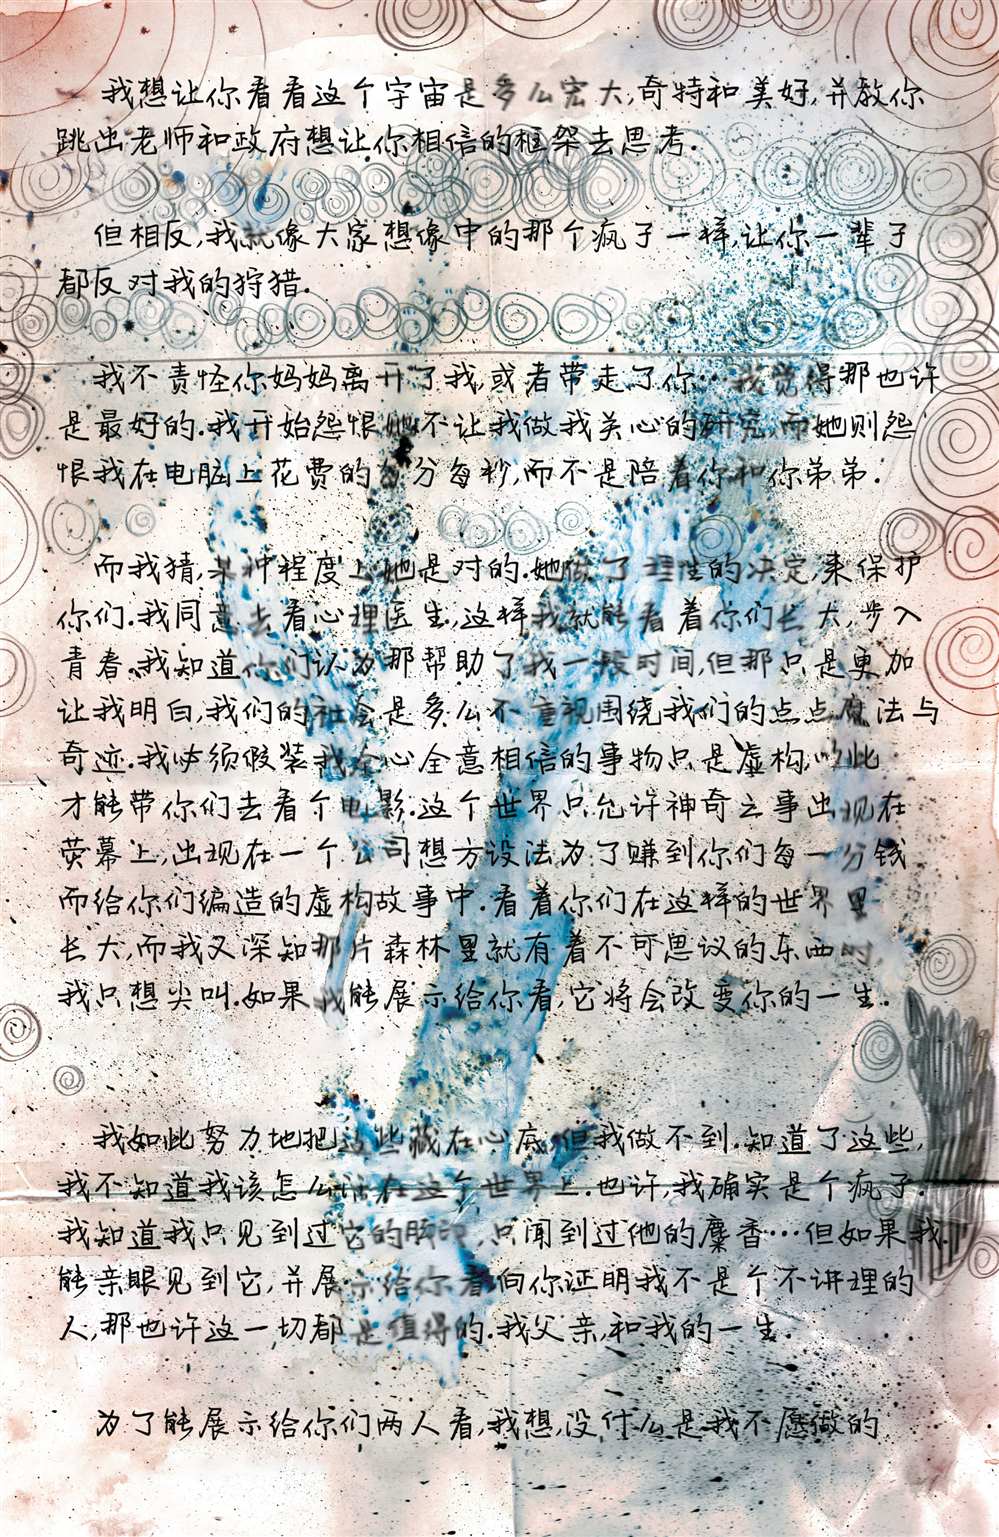 我想让你看看这个宇宙是多么宏大,奇特和美好,并教你
跳出老师和政府想让你相信的框架去思考.
但相反,我就像大家想像中的那个疯子一样,让你一辈子
都反对我的狩猎.
我不责怪你妈妈离开了我,或者带走了你…我觉得那也许
是最好的.我开始怨恨她不让我做我关心的研究,而她则怨
恨我在电脑上花费的每分每秒,而不是陪着你和你弟弟.
而我猜,某种程度上她是对的.她做了理性的决定,来保护
你们.我同意去看心理医生,这样我就能看着你们长大,步入
青春.我知道你们认为那帮助了我一段时间,但那只是更加
让我明白,我们的社会是多么不重视围绕我们的点点魔法与
奇迹.我必须假装我全心全意相信的事物只是虚构,以此
才能带你们去看个电影.这个世界只允许神奇之事出现在
荧幕上,出现在一个公司想方设法为了赚到你们每一分钱
而给你们编造的虚构故事中.看着你们在这样的世界里
长大,而我又深知那片森林里就有着不可思议的东西时,
我只想尖叫.如果我能展示给你看,它将会改变你的一生.
我如此努力地把这些藏在心底,但我做不到.知道了这些,
我不知道我该怎么活在这个世界上.也许,我确实是个疯子.
我知道我只见到过它的脚印,只闻到过他的麝香…但如果我
能亲眼见到它,并展示给你看,向你证明我不是个不讲理的
人,那也许这一切都是值得的.我父亲,和我的一生.
为了能展示给你们两人看,我想,没什么是我不愿做的